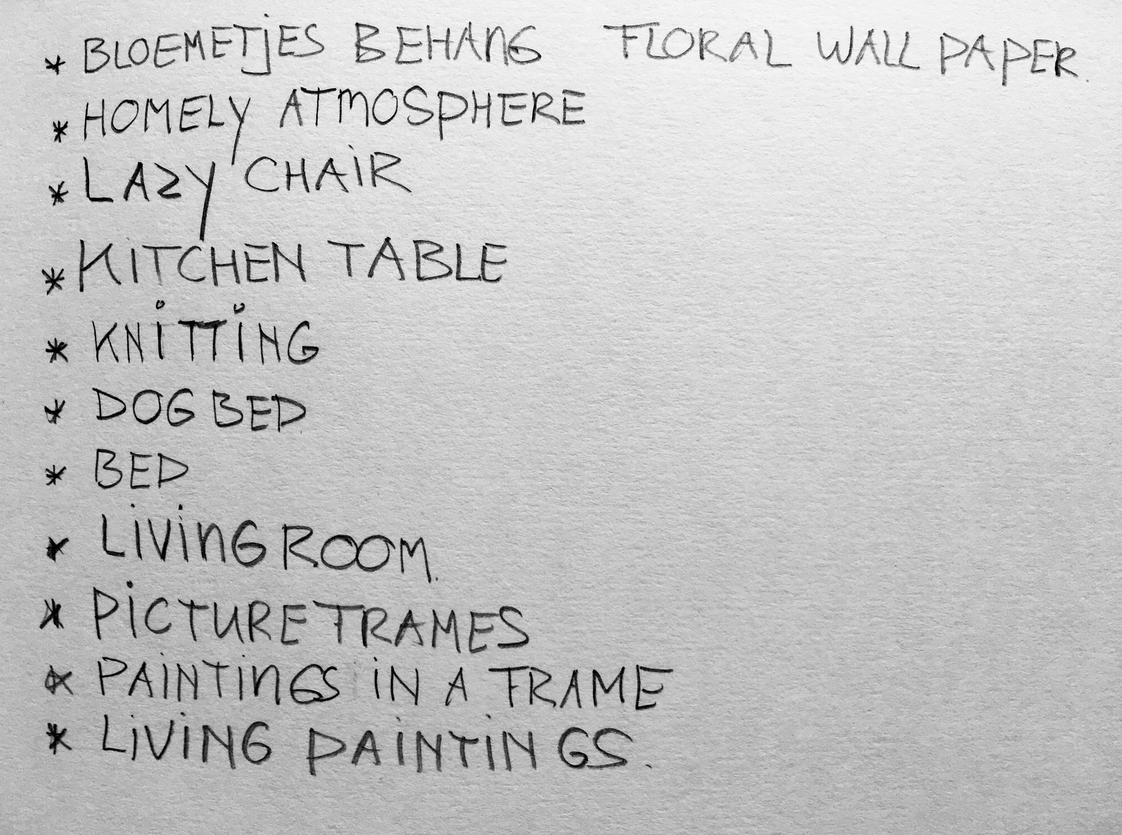 * BLOEMETjES BEHANG FLORAL WALL PAPER.
* HOMELY ATMOSPHERE
* LAZY CHAIR
* KITCHEN TABLE
* KNITTING
* DOG BED
* BED
* LIVING ROOM.
* PICTURE FRAMES
* PAINTINGS IN A FRAME
* LIVING PAINTINGS.